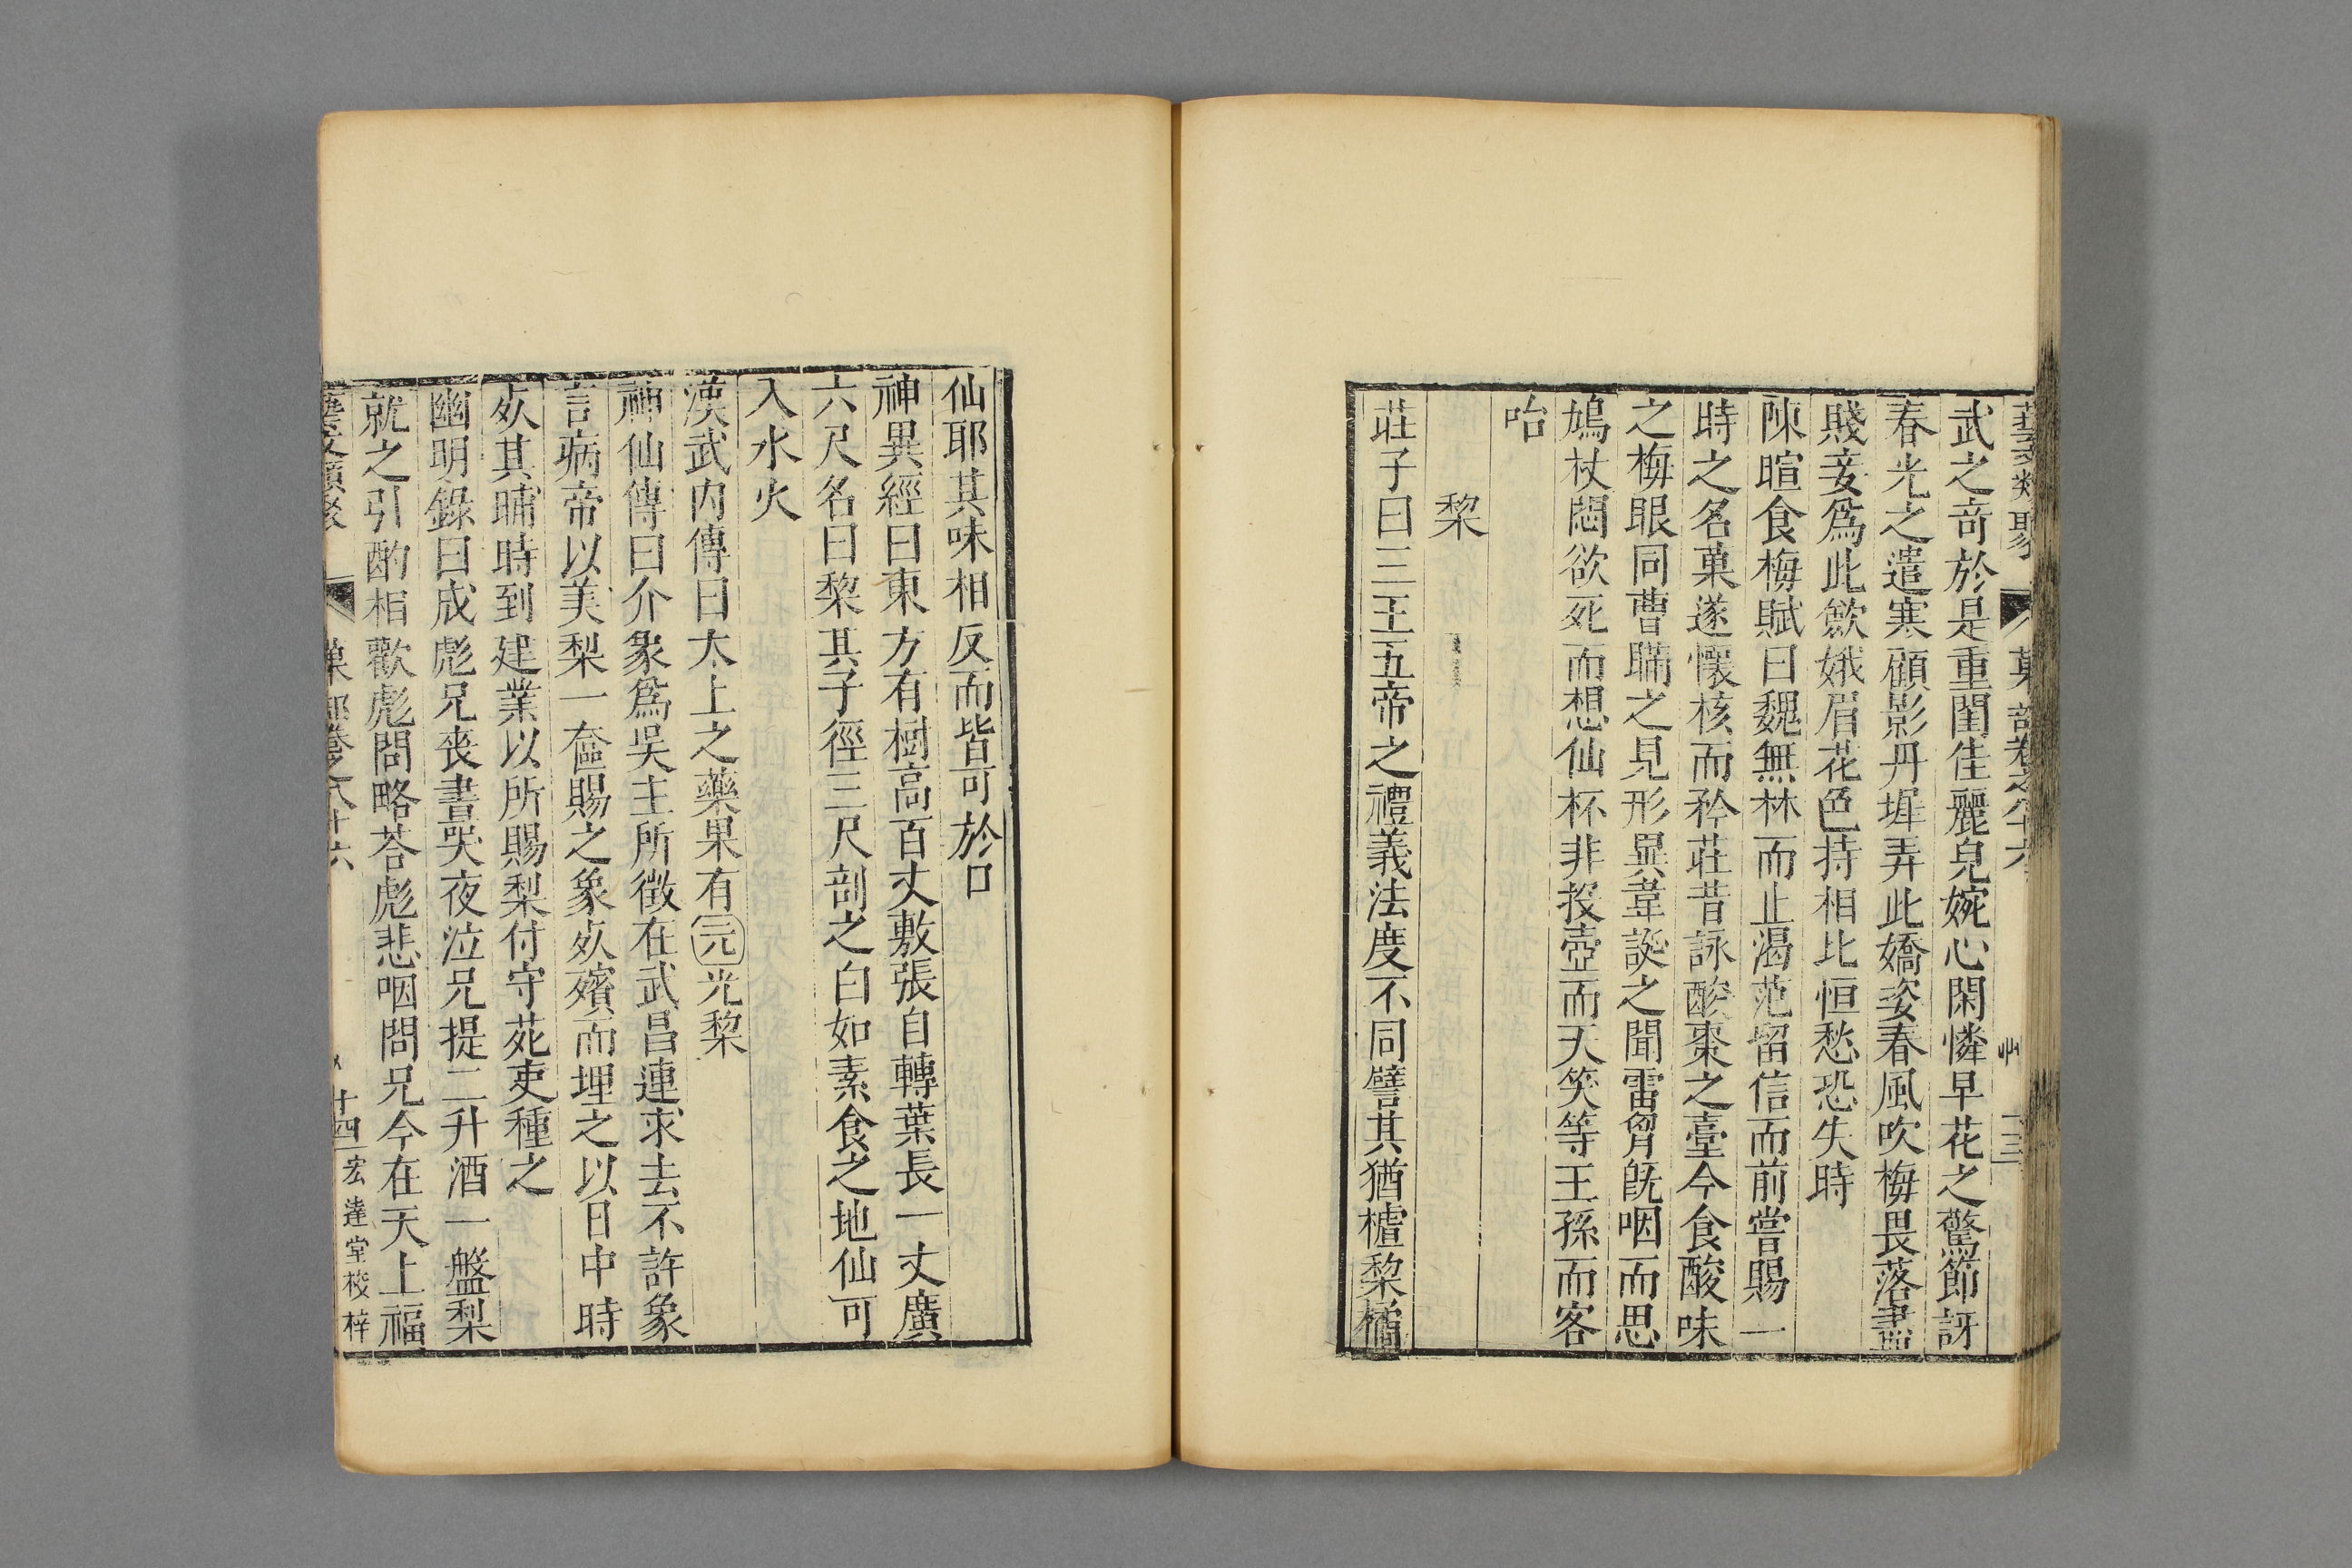 藝文類聚 菓部卷之八十六 十三
武之奇於是重閨佳麗皃婉心閑憐早花之驚節訝
春光之遣寒顧影丹墀弄此嬌姿春風吹梅畏落盡
賤妾爲此歛娥眉花色持相比恒愁恐失時
陳暄食梅賦曰魏無林而止渴范留信而前嘗賜一
時之名菓遂懷核而矜莊昔詠酸棗之臺今食酸味
之梅眼同曹瞞之見形異韋誕之聞雷胷旣咽而思
鳩杖悶欲死而想仙杯非投壺而天笑等王孫而客
咍
棃
莊子曰三王五帝之禮義法度不同譬其猶樝棃橘
仙耶其味相反而皆可於口
神異經曰東方有樹高百丈敷張自轉葉長一丈廣
六尺名曰棃其子徑三尺剖之白如素食之地仙可
入水火
漢武内傳曰太上之藥果有元光棃
神仙傳曰介象爲吳主所徵在武昌連求去不許象
言病帝以美梨一奩賜之象𣦸殯而埋之以日中時
𣦸其晡時到建業以所賜梨付守苑吏種之
幽明錄曰成彪兄喪晝哭夜泣兄提二升酒一盤梨
就之引酌相歡彪問略荅彪悲咽問兄今在天上福
藝文類聚 菓部卷之八十六 十四 宏達堂校梓